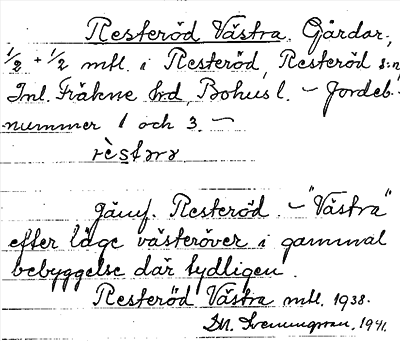 Resteröd Västra. Gårdar;
1/2 + 1/2 mtl. i Resteröd, Resteröd s:n
Inl. Fräkne hrd, Bohusl. – Jordeb.-
nummer 1 och 3. –
Jämf. Resteröd. – "Västra"
efter läge västeröver i gammal
bebyggelse där tydligen.
Resteröd Västra mtl. 1938.
1941.